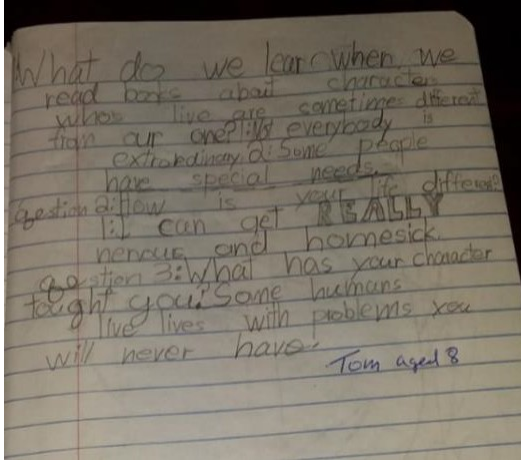 What do we lear when we
read books about character
whos live are sometimes different
from our one? 1: Yes everybody is
extraordinary. 2: Some people
have special needs.
qestion 2: How is your life different?
1: I can get REALLY
nervous and homesick.
qestion 3: What has your character
tought you? Some humans
live lives with problems you
will never have.
Tom aged 8